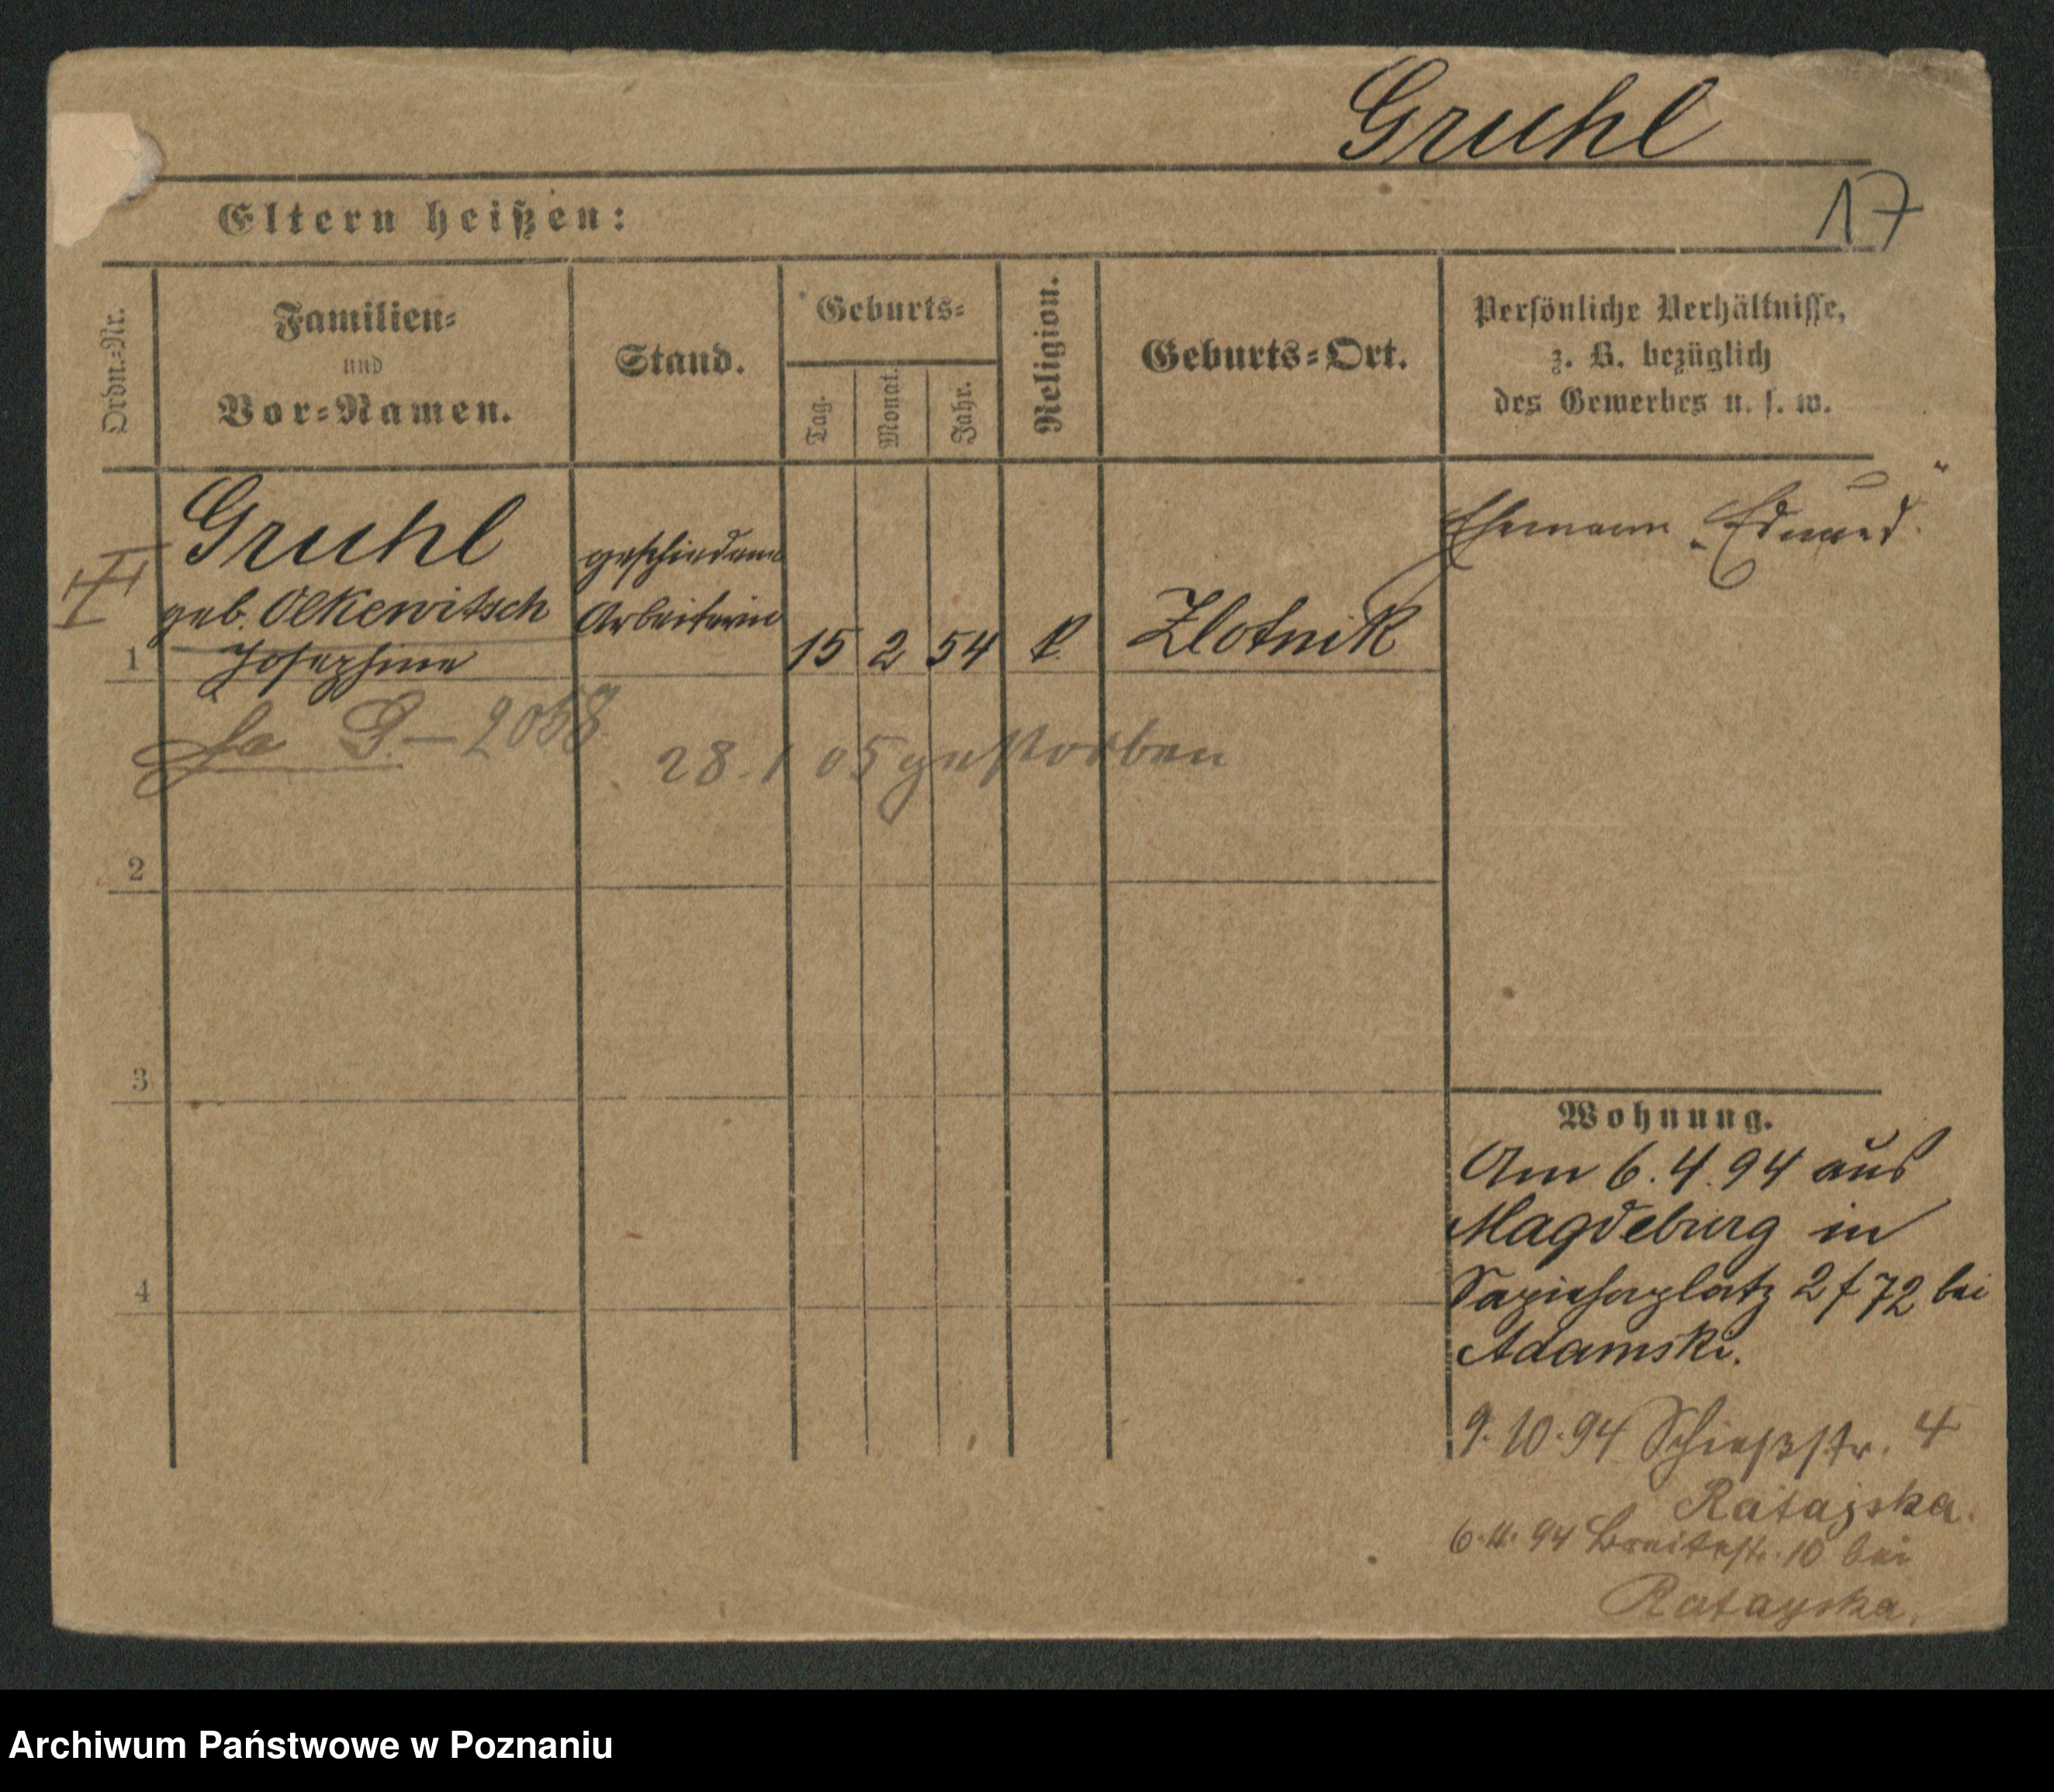 Gruhl
17
Eltern heißen:
Ordn.-Nr.
Familien-
und
Vor-Namen.
Stand.
Geburts-
Tag.
Monat.
Jahr.
Religion.
Geburts-Ort.
Persönliche Verhältnisse,
z. B. bezüglich
des Gewerbes u. s. w.
Gruhl
geb. Olkewitsch
Josephine
geschiedene
Arbeiterin
1
15 2 54 k. Zlotnik
Ehemann „Eduard“
G. – 2058
28. 1 05 gestorben
2
3
4
Wohnung.
Am 6. 4. 94 aus
Magdeburg in
Sapiehaplatz 2 f 72 bei
Adamski.
9. 10. 94 Schießstr. 4
Ratajska.
94 Breitestr. 10 bei
Ratayska.
Archiwum Państwowe w Poznaniu